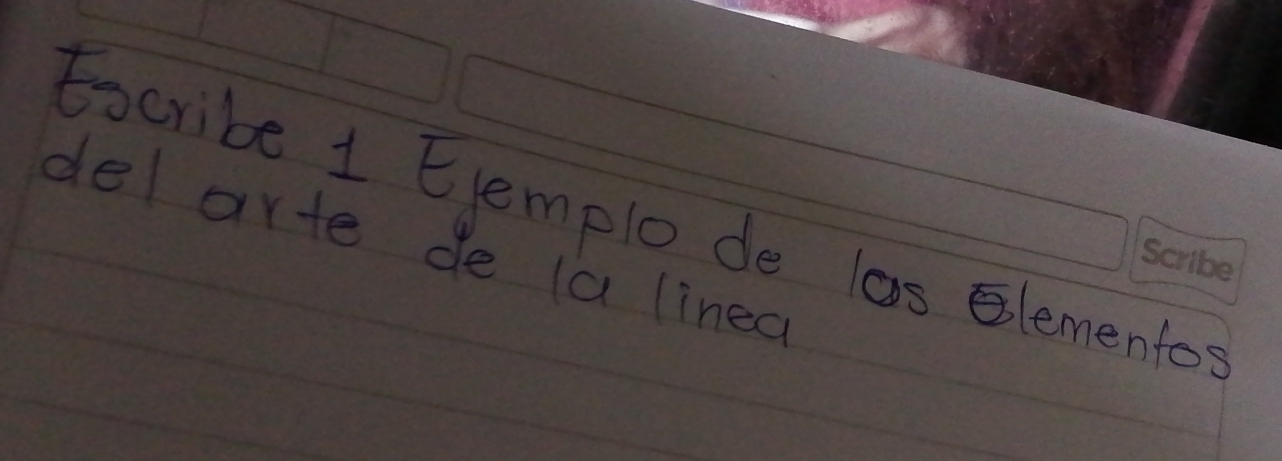 Scribe
Escribe 1 Ejemplo de los Elementos
del arte de la linea